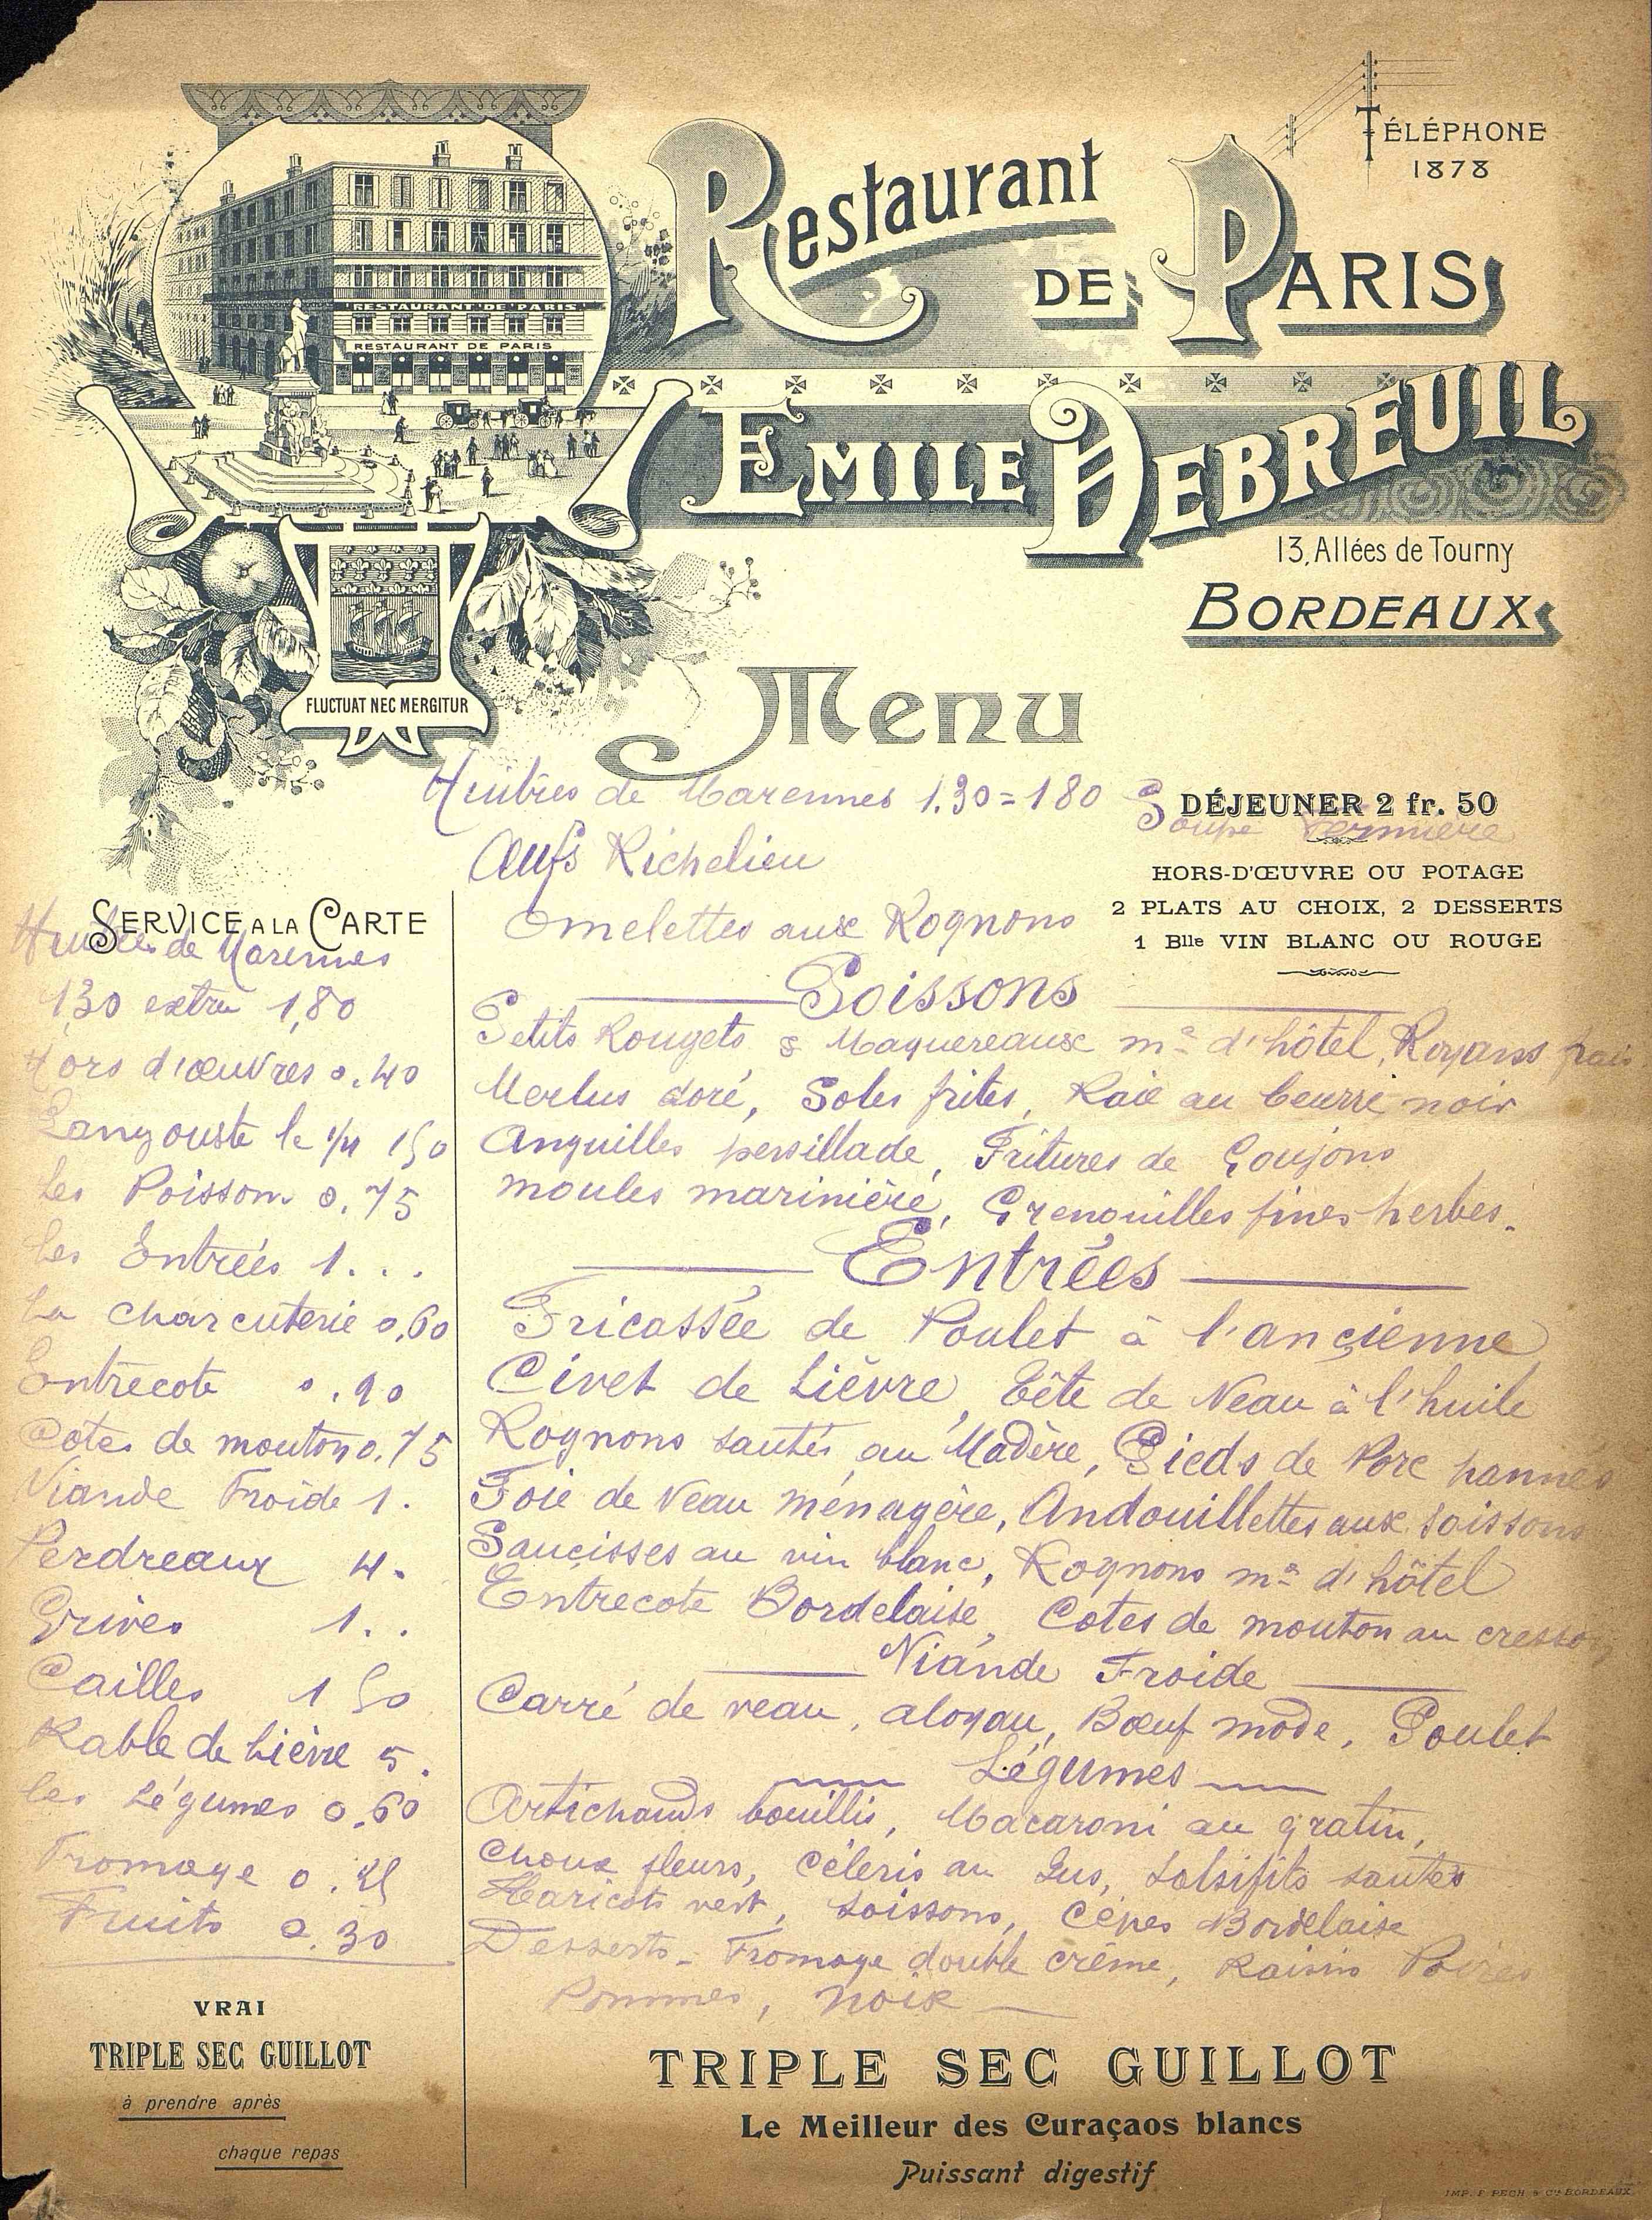 TÉLÉPHONE
1878
Restaurant
DE PARIS
RESTAURANT DE PARIS
RESTAURANT DE PARIS
EMILE DEBREUIL
13, Allées de Tourny
BORDEAUX
FLUCTUAT NEC MERGITUR
Menu
Huitres de Marennes 1.30 = 1 80
DÉJEUNER 2 fr. 50
Soupe
Œufs Richelieu
HORS-D'ŒUVRE OU POTAGE
2 PLATS AU CHOIX, 2 DESSERTS
1 Blle VIN BLANC OU ROUGE
Omelettes aux Rognons
Poissons
Petits Rougets & Maquereaux me d'hôtel, Royans frais
Merlus doré, Soles frites, Raie au beurre noir
Anguilles persillade, Fritures de Goujons
moules marinière, Grenouilles fines herbes.
Entrées
Fricassée de Poulet à l'ancienne
Civet de Lièvre, Tête de Veau à l'huile
Rognons sautés au Madère, Pieds de Porc pannés
Foie de Veau ménagère, Andouillettes aux soissons
Saucisses au vin blanc, Rognons me d'hôtel
Entrecote Bordelaise, Cotes de mouton au cresson
Viande Froide
Carré de veau, aloyau, Bœuf mode, Poulet
Légumes
Artichauds bouillis, Macaroni au gratin,
Choux fleurs, Céleris au Jus, Salsifits sautés
Haricots vert, Soissons, Cèpes Bordelaise
Desserts - Fromage double crême, Raisin Poires
Pommes, noix
SERVICE A LA CARTE
Huitres de Marennes
1,30 extra 1,80
Hors d'œuvres 0.40
Langouste le 1/4 1 50
Les Poissons 0.75
Les Entrées 1...
La charcuterie 0,60
Entrecote 0.90
Cotes de mouton 0.75
Viande Froide 1.
Perdreaux 4.
Grives 1..
Cailles 1 50
Rable de Lièvre 5.
Les Légumes 0.60
Fromage 0.25
Fruits 0.30
VRAI
TRIPLE SEC GUILLOT
à prendre après
chaque repas
TRIPLE SEC GUILLOT
Le Meilleur des Curaçaos blancs
Puissant digestif
IMP. F. PECH & Cie BORDEAUX